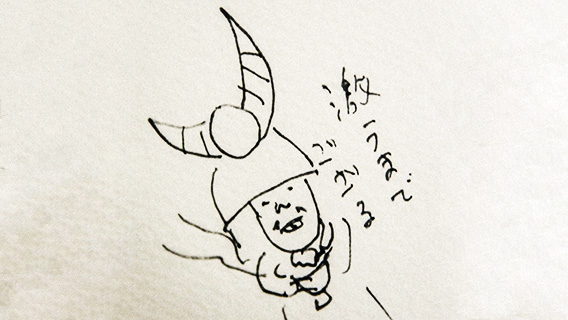 激うまで
ござる